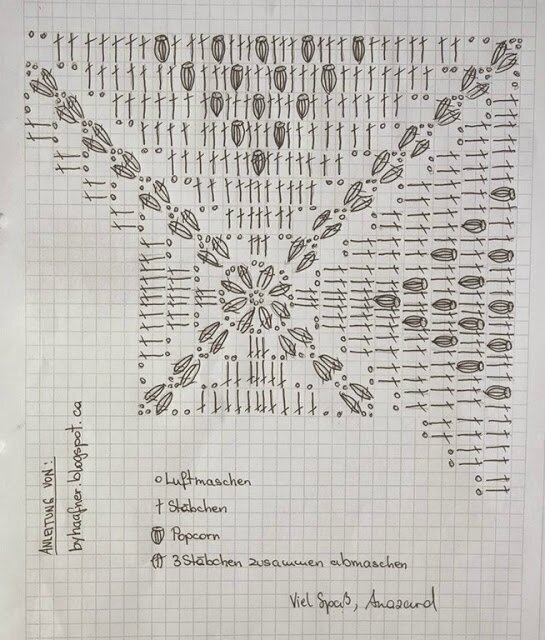 ANLEITUNG VON:
byhaafner.blogspot.ca
Luftmaschen
Stäbchen
Popcorn
3 Stäbchen zusammen abmaschen
Viel Spaß,